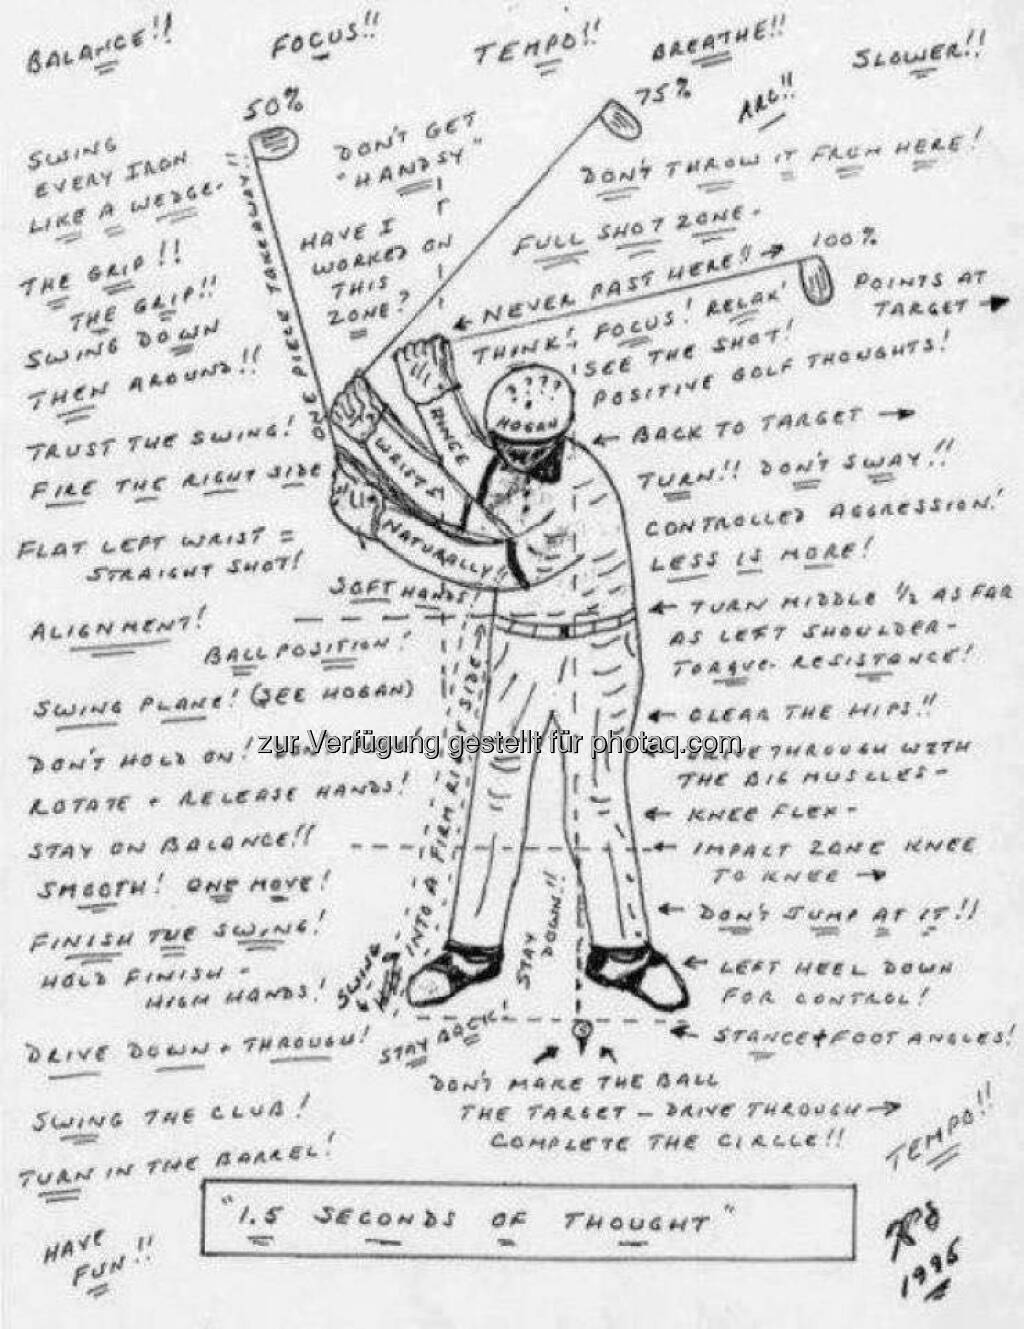 BALANCE!!
FOCUS!!
TEMPO!!
BREATHE!!
SLOWER!!
50%
75%
ARC!!
SWING
EVERY IRON
LIKE A WEDGE.
DON'T GET
"HANDSY"
DON'T THROW IT FROM HERE!
ONE PIECE TAKEAWAY!!
HAVE I
WORKED ON
THIS
ZONE?
FULL SHOT ZONE.
100%
THE GRIP!!
THE GRIP!!
← NEVER PAST HERE!! →
POINTS AT
TARGET →
SWING DOWN
THEN AROUND!!
THINK! FOCUS! RELAX!
SEE THE SHOT!
POSITIVE GOLF THOUGHTS!
????
HOGAN
HINGE
WRISTS
NATURALLY!!
← BACK TO TARGET →
TRUST THE SWING!
FIRE THE RIGHT SIDE
TURN!! DON'T SWAY!!
CONTROLLED AGGRESSION!
LESS IS MORE!
FLAT LEFT WRIST =
STRAIGHT SHOT!
SOFT HANDS!
← TURN MIDDLE 1/2 AS FAR
AS LEFT SHOULDER-
TORQUE. RESISTANCE!
ALIGNMENT!
BALL POSITION!
SWING PLANE! (SEE HOGAN)
← CLEAR THE HIPS!!
DON'T HOLD ON!
zur Verfügung gestellt für photaq.com
← DRIVE THROUGH WITH
THE BIG MUSCLES-
ROTATE + RELEASE HANDS!
← KNEE FLEX-
STAY ON BALANCE!!
← IMPACT ZONE KNEE
TO KNEE →
SMOOTH! ONE MOVE!
← DON'T JUMP AT IT!!
FINISH THE SWING!
HOLD FINISH -
HIGH HANDS!
SWING
INTO A FIRM RIGHT SIDE →
STAY
DOWN!!
← LEFT HEEL DOWN
FOR CONTROL!
← STANCE + FOOT ANGLES!
DRIVE DOWN + THROUGH!
STAY BACK!
DON'T MAKE THE BALL
THE TARGET - DRIVE THROUGH →
COMPLETE THE CIRCLE!!
SWING THE CLUB!
TURN IN THE BARREL!
TEMPO!!
"1.5 SECONDS OF THOUGHT"
HAVE
FUN!!